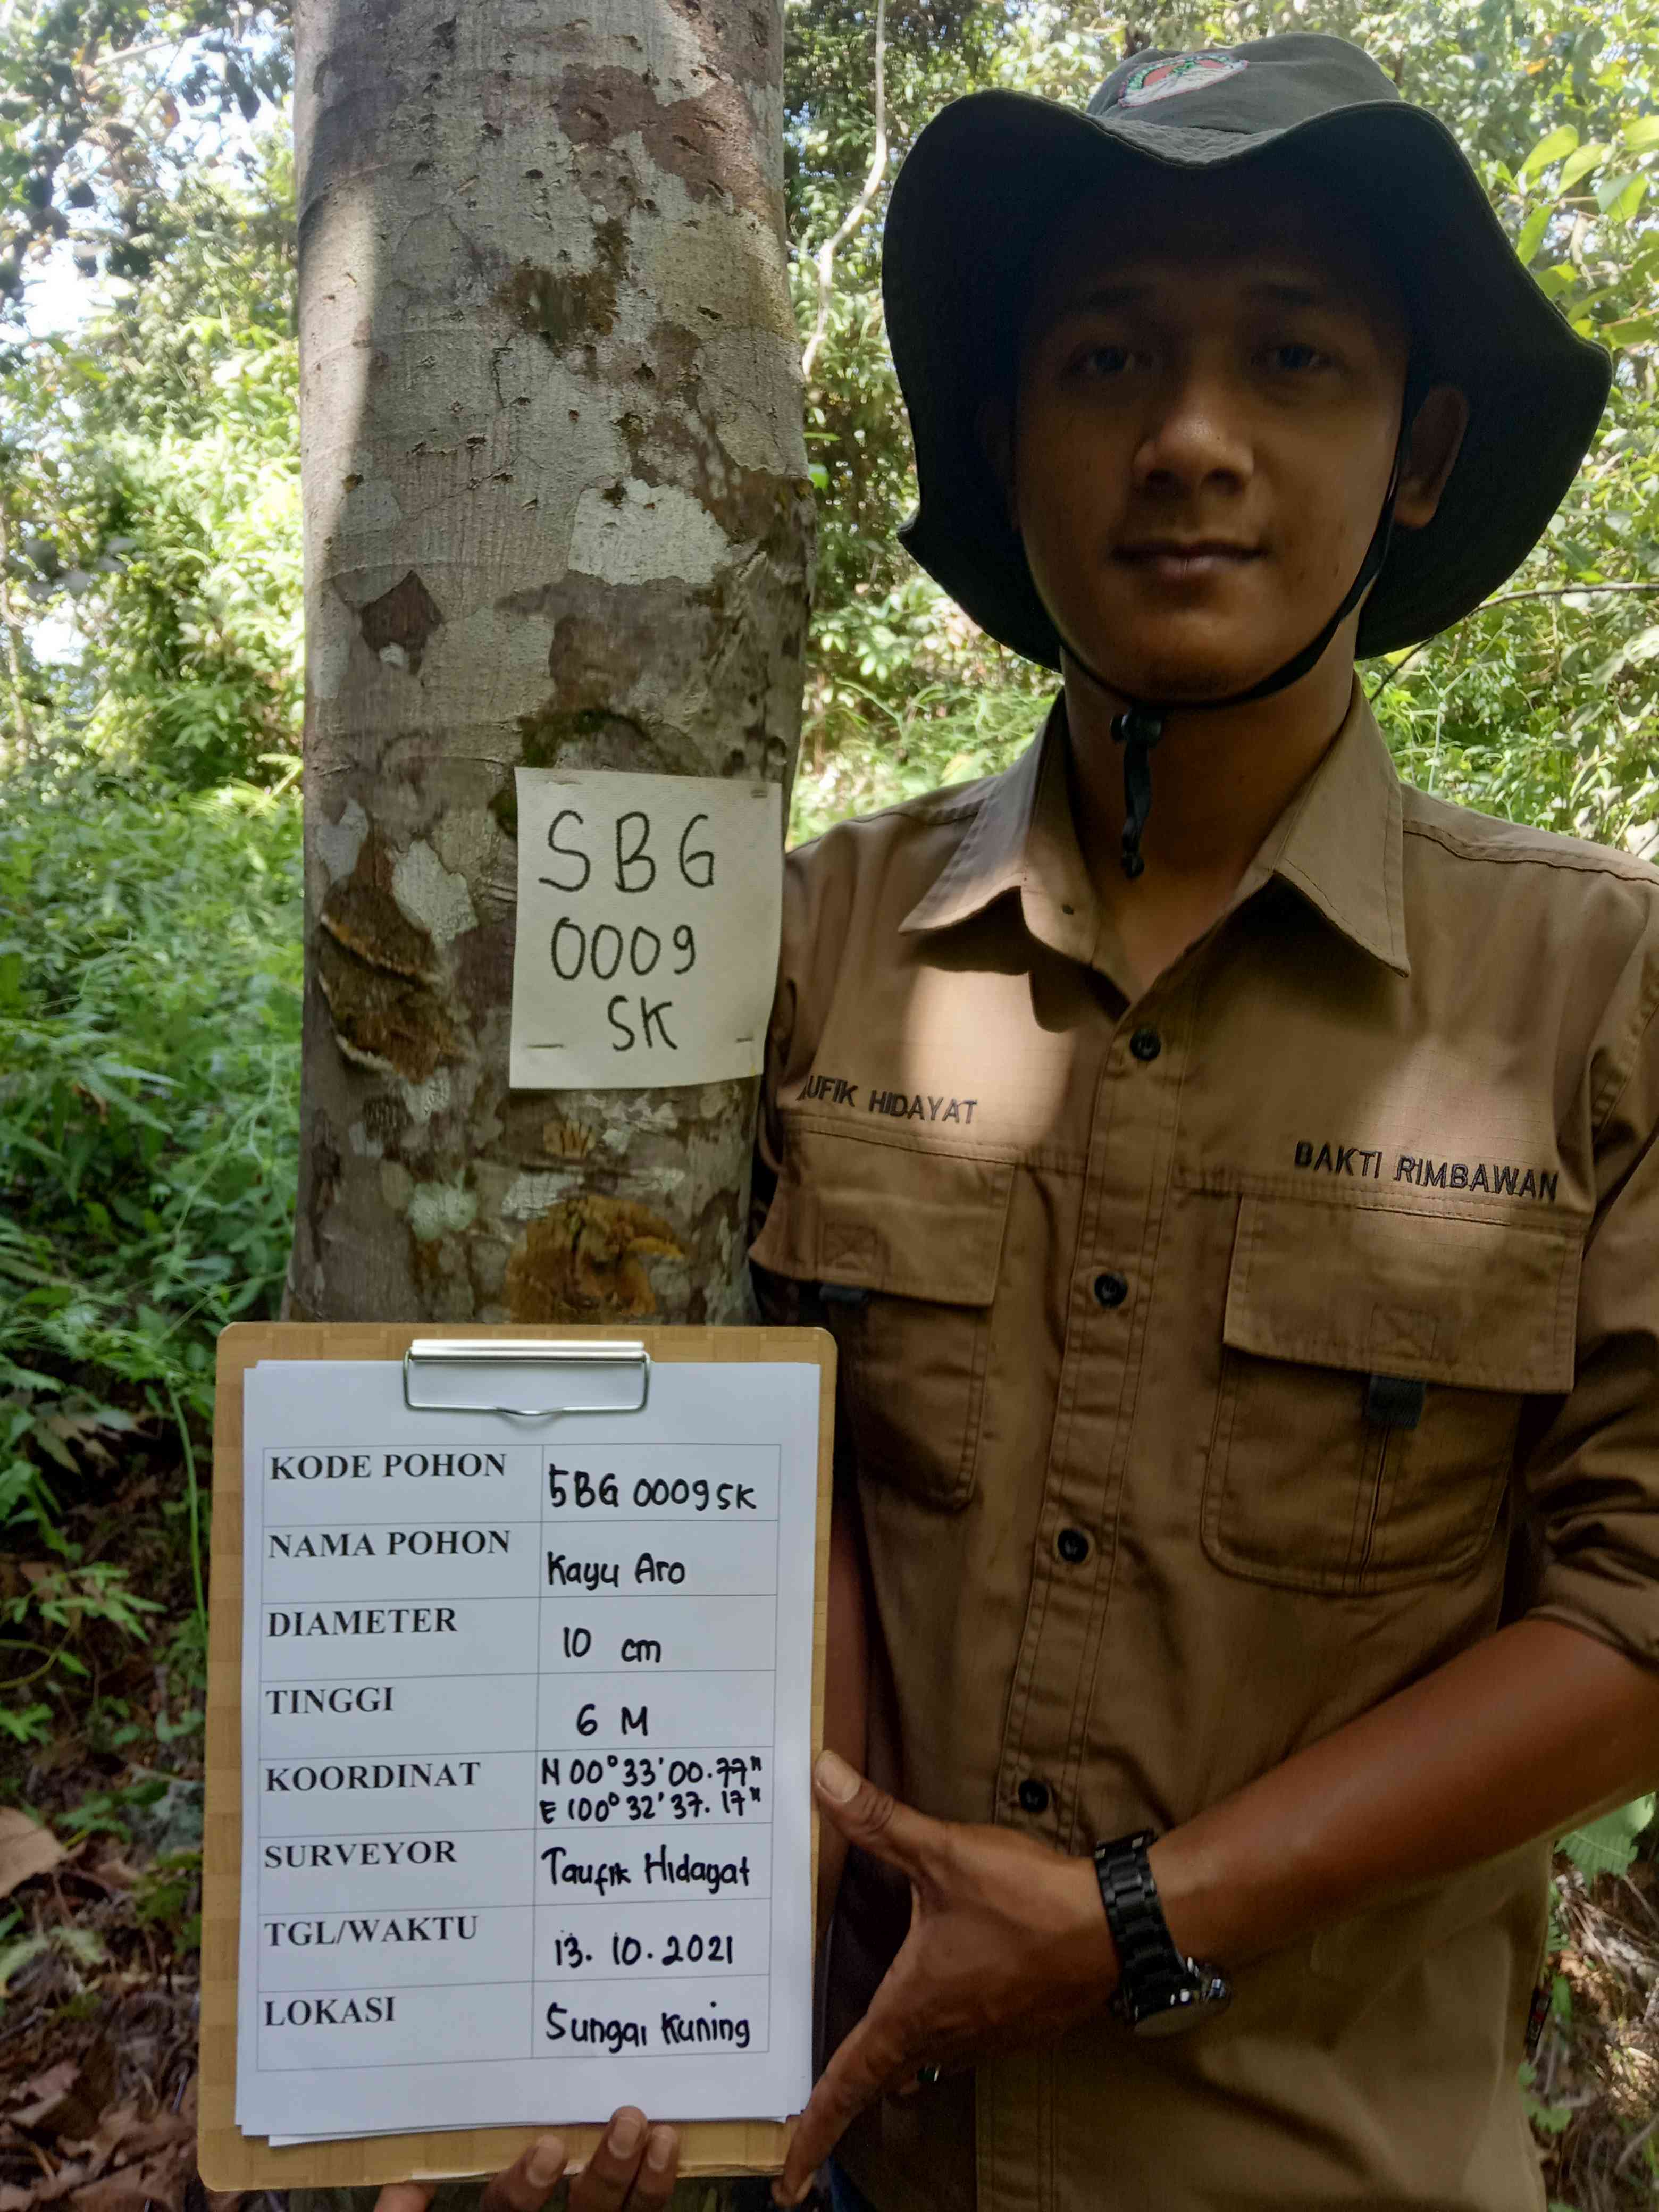 SBG
0009
SK
AUFIK HIDAYAT
BAKTI RIMBAWAN
KODE POHON SBG 0009 SK
NAMA POHON Kayu Aro
DIAMETER 10 cm
TINGGI 6 M
KOORDINAT N 00°33'00.77"
E 100°32'37.17"
SURVEYOR Taufik Hidayat
TGL/WAKTU 13.10.2021
LOKASI Sungai Kuning